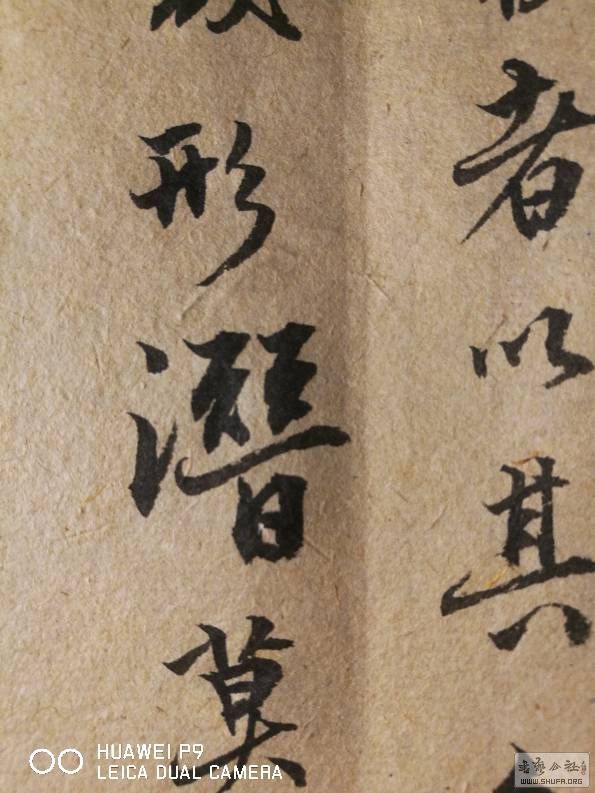 者以其
形潛莫
HUAWEI P9
LEICA DUAL CAMERA
WWW.SHUFA.ORG